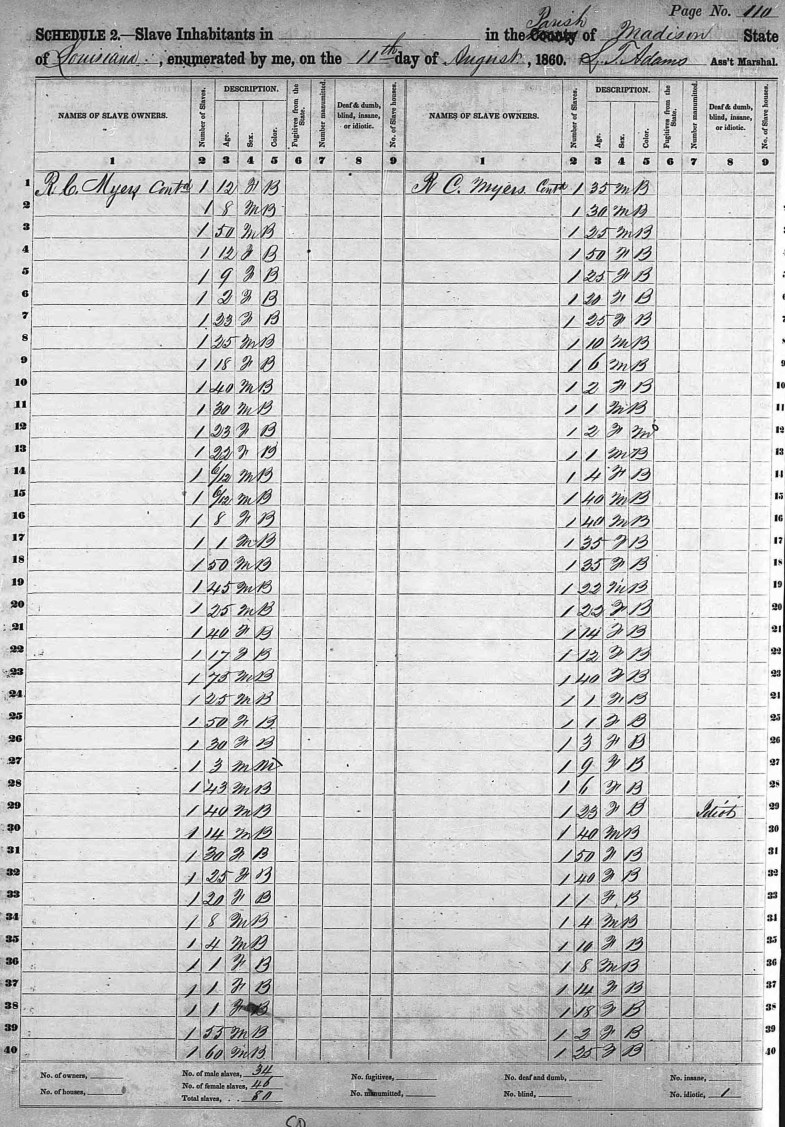 Page No. 110
SCHEDULE 2.—Slave Inhabitants in in the County Parish of Madison State
of Louisiana, enumerated by me, on the 11th day of August, 1860. S. T. Adams Ass't Marshal.
NAMES OF SLAVE OWNERS. Number of Slaves. DESCRIPTION. Age. Sex. Color. Fugitives from the State. Number manumitted. Deaf & dumb, blind, insane, or idiotic. No. of Slave houses. NAMES OF SLAVE OWNERS. Number of Slaves. DESCRIPTION. Age. Sex. Color. Fugitives from the State. Number manumitted. Deaf & dumb, blind, insane, or idiotic. No. of Slave houses.
1 2 3 4 5 6 7 8 9 1 2 3 4 5 6 7 8 9
1 R. C. Myers Contd 1 12 F B R C. Myers. Contd 1 35 M B 1
2 1 8 M B 1 30 M B 2
3 1 50 M B 1 25 M B 3
4 1 12 F B 1 50 F B 4
5 1 9 F B 1 25 F B 5
6 1 2 F B 1 20 F B 6
7 1 23 F B 1 25 F B 7
8 1 25 M B 1 10 M B 8
9 1 18 F B 1 6 M B 9
10 1 40 M B 1 2 F B 10
11 1 30 M B 1 1 M B 11
12 1 23 F B 1 2 F M 12
13 1 22 F B 1 1 M B 13
14 1 6/12 M B 1 4 F B 14
15 1 6/12 M B 1 40 M B 15
16 1 8 F B 1 40 M B 16
17 1 1 M B 1 35 F B 17
18 1 50 M B 1 35 F B 18
19 1 45 M B 1 22 M B 19
20 1 25 M B 1 22 F B 20
21 1 40 F B 1 14 F B 21
22 1 17 F B 1 12 F B 22
23 1 75 M B 1 40 F B 23
24 1 25 M B 1 1 F B 24
25 1 50 F B 1 1 F B 25
26 1 30 F B 1 3 F B 26
27 1 3 M M 1 9 F B 27
28 1 43 M B 1 6 F B 28
29 1 40 M B 1 23 F B Idiot 29
30 1 14 M B 1 40 M B 30
31 1 30 F B 1 50 F B 31
32 1 25 F B 1 40 F B 32
33 1 20 F B 1 1 F B 33
34 1 8 M B 1 4 M B 34
35 1 4 M B 1 10 F B 35
36 1 1 F B 1 8 M B 36
37 1 1 F B 1 14 F B 37
38 1 1 F B 1 18 F B 38
39 1 55 M B 1 2 F B 39
40 1 60 M B 1 25 F B 40
No. of owners, No. of male slaves, 34 No. fugitives, No. deaf and dumb, No. insane,
No. of houses, No. of female slaves, 46 No. manumitted, No. blind, No. idiotic, 1
Total slaves, 80